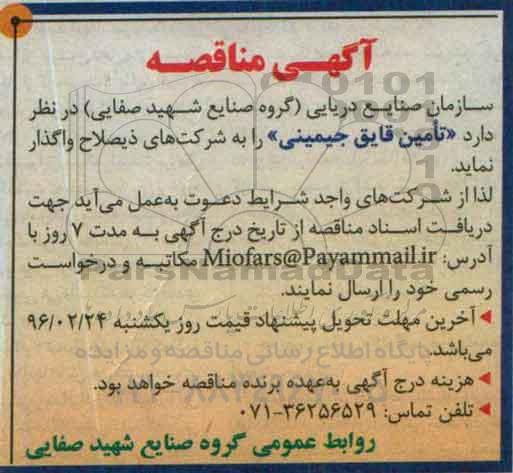 آگهی مناقصه
سازمان صنایع دریایی (گروه صنایع شهید صفایی) در نظر
دارد «تأمین قایق جیمینی» را به شرکت‌های ذیصلاح واگذار
نماید.
لذا از شرکت‌های واجد شرایط دعوت به‌عمل می‌آید جهت
دریافت اسناد مناقصه از تاریخ درج آگهی به مدت ۷ روز با
آدرس: Miofars@Payammail.ir مکاتبه و درخواست
رسمی خود را ارسال نمایند.
آخرین مهلت تحویل پیشنهاد قیمت روز یکشنبه ۹۶/۰۲/۲۴
می‌باشد.
هزینه درج آگهی به‌عهده برنده مناقصه خواهد بود.
تلفن تماس: ۳۶۲۵۶۵۲۹-۰۷۱
روابط عمومی گروه صنایع شهید صفایی
ParsNamadData
پایگاه اطلاع رسانی مناقصه و مزایده